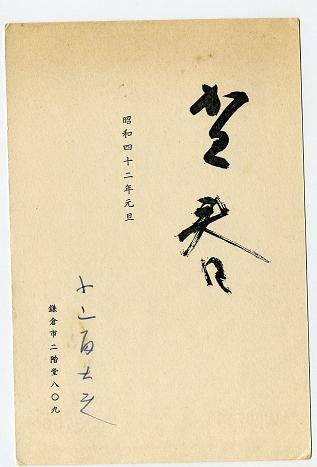 賀春
昭和四十二年元旦
小山冨士夫
鎌倉市二階堂八〇九